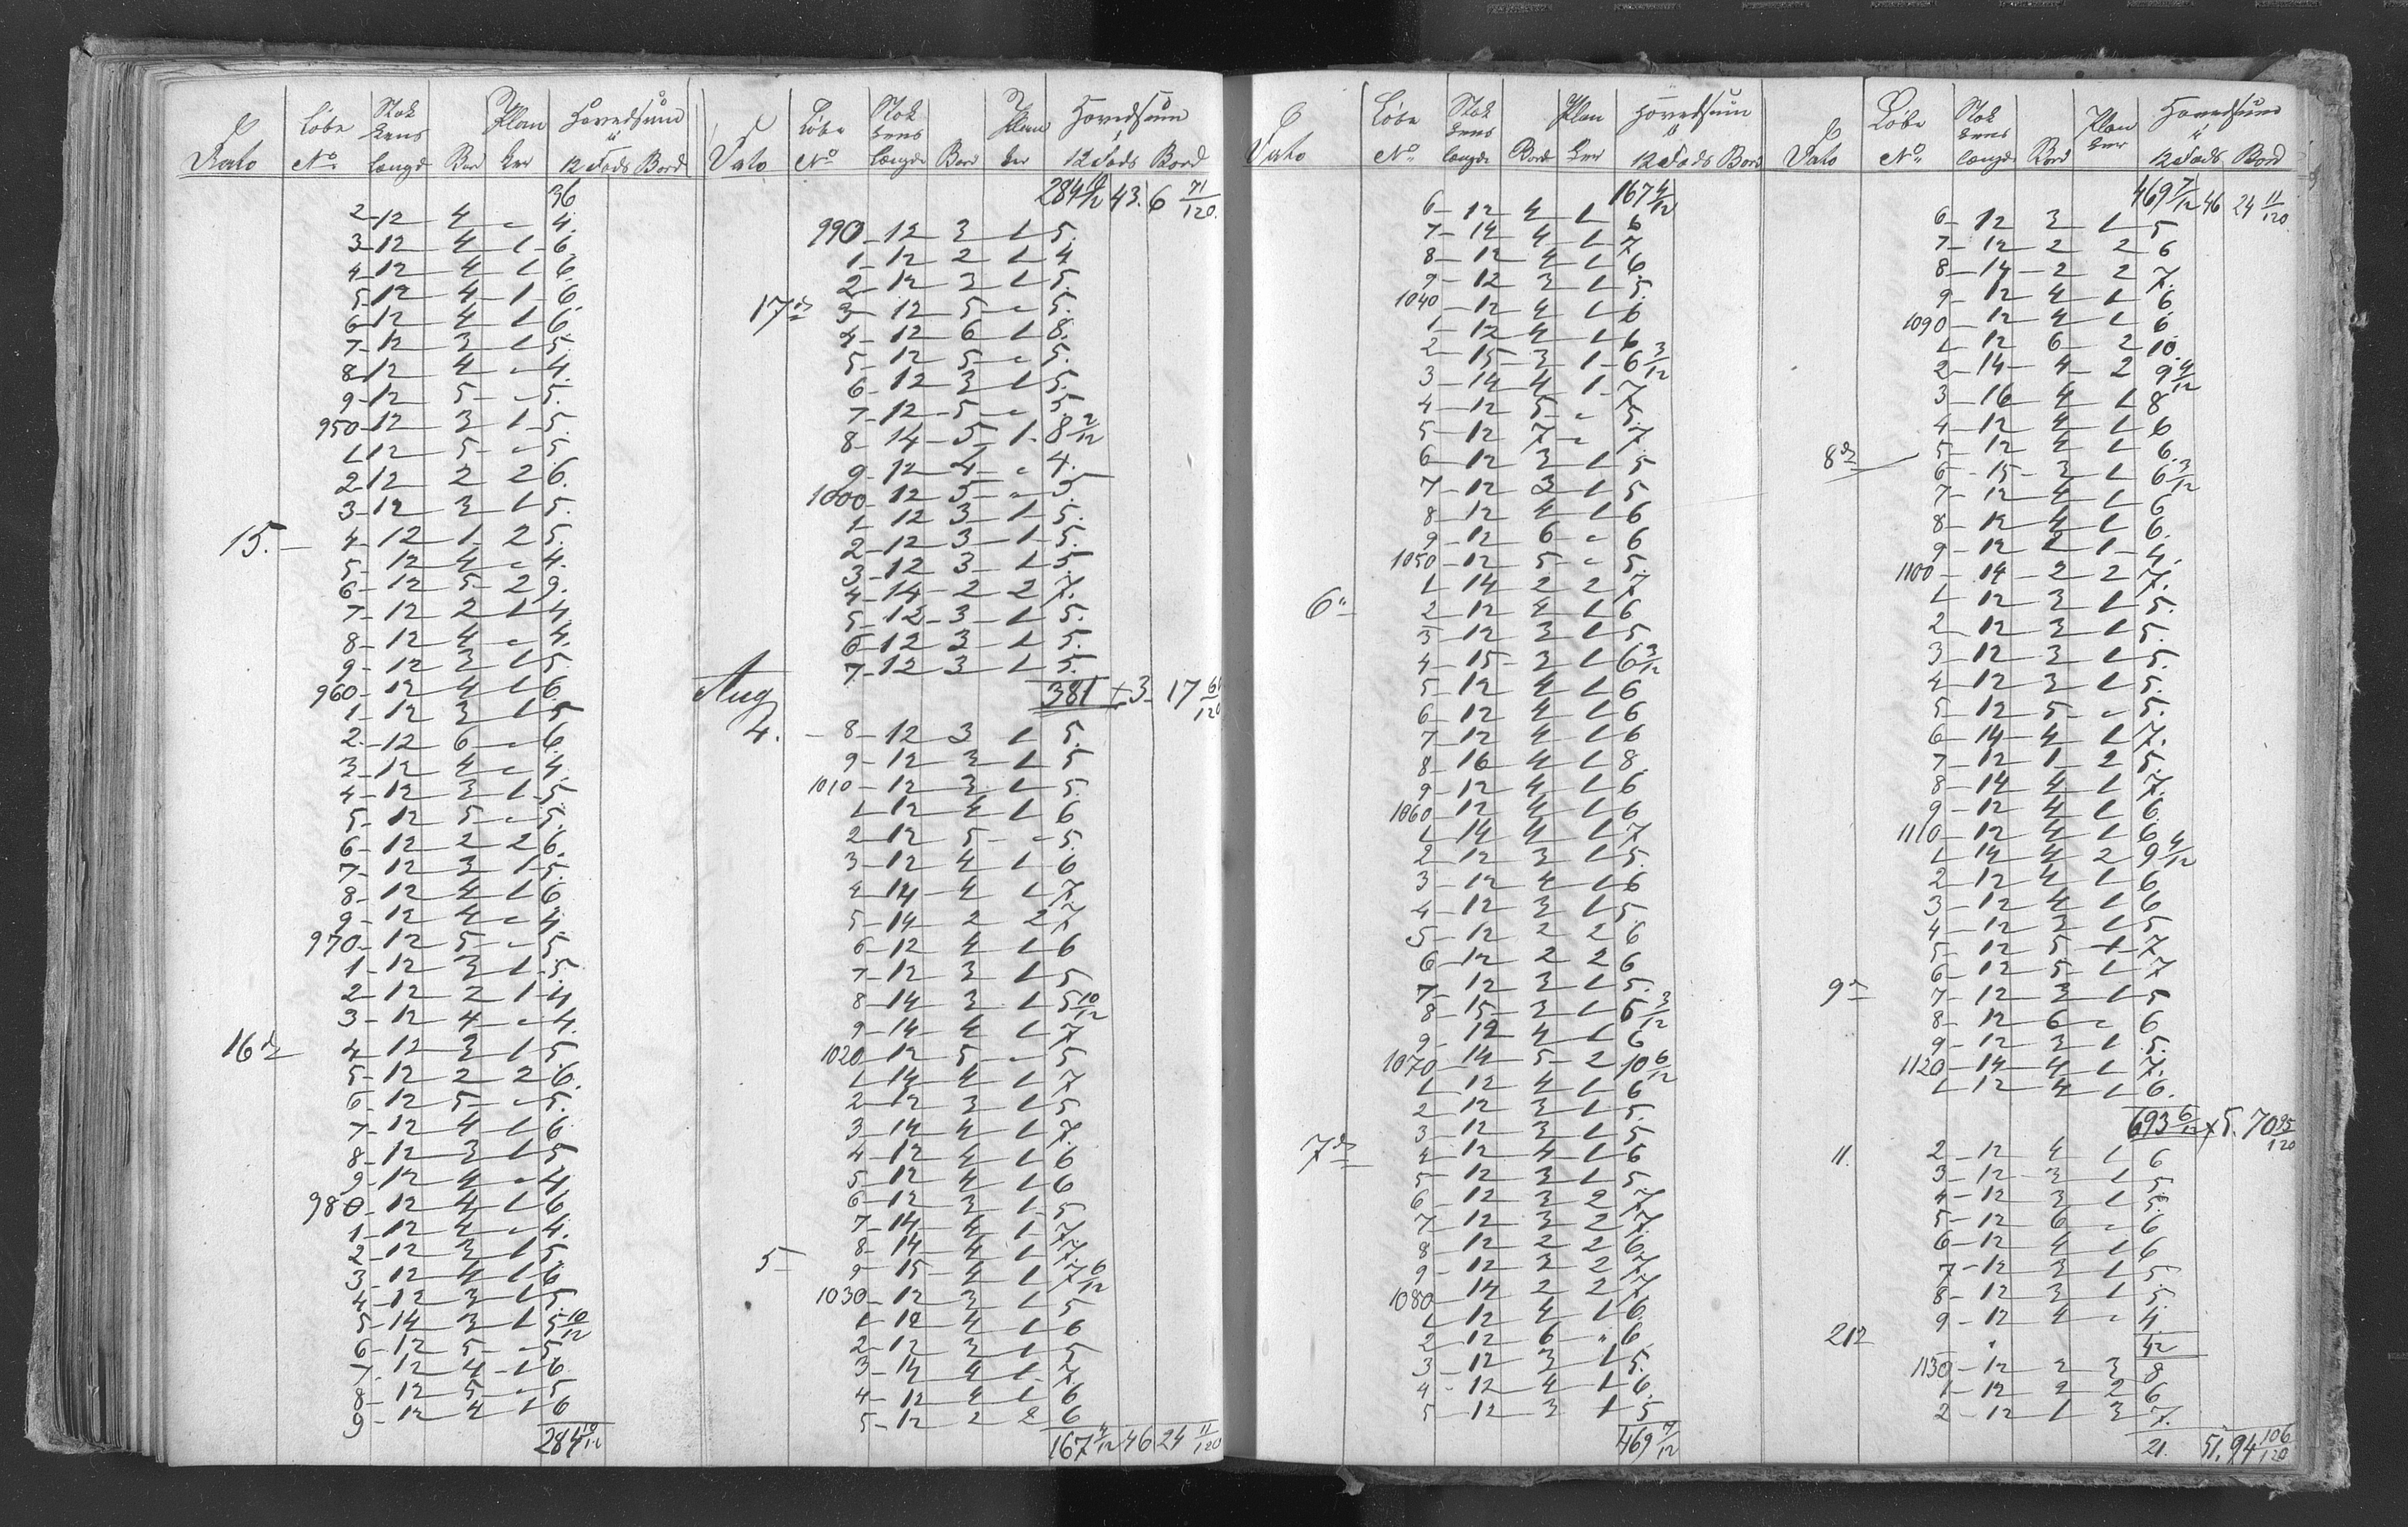 Dato Løbe No Stokkens længde Bor Planker Hovedsum a 12 Fods Bord
36
2 - 12 4 " 4.
3 - 12 4 1 6
4 - 12 4 1 6.
5 - 12 4 1 6.
6 - 12 4 1 6.
7 - 12 3 1 5.
8 - 12 4 " 4.
9 - 12 5 " 5.
950 - 12 3 1 5.
1 12 5 " 5
2 - 12 2 2 6.
3 - 12 3 1 5.
15. - 4 - 12 1 2 5.
5 - 12 4 " 4.
6 - 12 5 2 9.
7 - 12 2 1 4
8 - 12 4 " 4.
9 - 12 3 1 5.
960 - 12 4 1 6.
1 - 12 3 1 5
2 - 12 6 " 6.
3 - 12 4 " 4.
4 - 12 3 1 5.
5 - 12 5 " 5.
6 - 12 2 2 6.
7 - 12 3 1 5.
8 - 12 4 1 6
9 - 12 4 " 4.
970 - 12 5 " 5.
1 - 12 3 1 5.
2 - 12 2 1 4
3 - 12 4 " 4.
16 d 4 - 12 3 1 5.
5 - 12 2 2 6.
6 - 12 5 " 5.
7 - 12 4 1 6
8 - 12 3 1 5
9 - 12 4 " 4
980 - 12 4 1 6
1 - 12 4 " 4.
2 - 12 3 1 5.
3 - 12 4 1 6
4 - 12 3 1 5.
5 - 14 3 1 5 10/12
6 - 12 5 " 5
7 - 12 4 1 6
8 - 12 5 " 5
9 - 12 4 1 6
284 10/12
Dato Løbe No Stokkens længde Bord Planker Hovedsum a 12 Fods Bord
284 10/12 43. 6 71/120.
990 - 12 3 1 5.
1 - 12 2 1 4
2 - 12 3 1 5.
17 d 3 - 12 5 " 5.
4 - 12 6 1 8.
5 - 12 5 " 5.
6 - 12 3 1 5.
7 - 12 5 " 5.
8 - 14 5 1 8 2/12
9 - 12 4 " 4.
1000 - 12 5 " 5
1 - 12 3 1 5.
2 - 12 3 1 5.
3 - 12 3 1 5.
4 - 14 2 2 7.
5 - 12 3 1 5.
6 - 12 3 1 5.
7 - 12 3 1 5.
Aug 381 + 3 - 17 61/120
4. - 8 - 12 3 1 5.
9 - 12 3 1 5
1010 - 12 3 1 5.
1 12 4 1 6
2 - 12 5 " 5.
3 - 12 4 1 6
4 - 14 4 1 7.
5 - 14 2 2 7
6 - 12 4 1 6
7 - 12 3 1 5
8 - 14 3 1 5 10/12
9 - 14 4 1 7
1020 - 12 5 " 5
1 14 4 1 7
2 - 12 3 1 5
3 - 14 4 1 7.
4 - 12 4 1 6
5 - 12 4 1 6
6 - 12 3 1 5
7 - 14 4 1 7.
8 - 14 4 1 7.
5 - 9 - 15 4 1 7 6/12
1030 - 12 3 1 5
1 - 12 4 1 6
2 - 12 3 1 5
3 - 14 4 1 7.
4 - 12 4 1 6
5 - 12 2 2 6
167 4/12 46 24 11/120
Dato Løbe No Stokkens længde Bord Planker Hovedsum a 12 Fods Bord
167 4/12
6 - 12 4 1 6
7 - 14 4 1 7
8 - 12 4 1 6
9 - 12 3 1 5.
1040 - 12 4 1 6
1 - 12 4 1 6
2 - 15 3 1 6 3/12
3 - 14 4 1 7.
4 - 12 5 " 5.
5 - 12 7 " 7.
6 - 12 3 1 5
7 - 12 3 1 5
8 - 12 4 1 6
9 - 12 6 " 6
1050 - 12 5 " 5.
1 14 2 2 7
6 " 2 - 12 4 1 6
3 - 12 3 1 5
4 - 15 3 1 6 3/12
5 - 12 4 1 6
6 - 12 4 1 6
7 - 12 4 1 6
8 - 16 4 1 8.
9 - 12 4 1 6
1060 - 12 4 1 6
1 14 4 1 7
2 - 12 3 1 5.
3 - 12 4 1 6
4 - 12 3 1 5.
5 - 12 2 2 6
6 - 12 2 2 6
7 - 12 3 1 5.
8 - 15 3 1 6 3/12
9 - 12 4 1 6
1070 - 14 5 2 10 6/12
1 12 4 1 6
2 - 12 3 1 5.
3 - 12 3 1 5
7 d 4 - 12 4 1 6
5 - 12 3 1 5
6 - 12 3 2 7.
7 - 12 3 2 7.
8 - 12 2 2 6.
9 - 12 3 2 7
1080 - 14 2 2 7
1 12 4 1 6.
2 - 12 6 " 6.
3 - 12 3 1 5.
4 - 12 4 1 6.
5 - 12 3 1 5
469 7/12
Dato Løbe No Stokkens længde Bord Planker Hovedsum a 12 Fods Bord
469 7/12 46 24 11/120.
6 - 12 3 1 5
7 - 12 2 2 6
8 - 14 2 2 7.
9 - 12 4 1 6
1090 - 12 4 1 6
1 12 6 2 10.
2 - 14 4 2 9 4/12
3 - 16 4 1 8
4 - 12 4 1 6
8 d 5 - 12 4 1 6.
6 - 15 3 1 6 3/12
7 - 12 4 1 6
8 - 12 4 1 6.
9 - 12 2 1 4.
1100 - 14 2 2 7.
1 12 3 1 5.
2 - 12 3 1 5.
3 - 12 3 1 5.
4 - 12 3 1 5.
5 - 12 5 " 5.
6 - 14 4 1 7.
7 - 12 1 2 5.
8 - 14 4 1 7.
9 - 12 4 1 6.
1110 - 12 4 1 6
1 14 4 2 9 4/12
2 - 12 4 1 6
3 - 12 4 1 6
4 - 12 3 1 5
5 - 12 5 1 7
6 - 12 5 1 7
9 " 7 - 12 3 1 5
8 - 12 6 " 6
9 - 12 3 1 5.
1120 - 14 4 1 7.
1 12 4 1 6.
693 6/12 x 5. 70 95/120
11. 2 - 12 4 1 6
3 - 12 3 1 5
4 - 12 3 1 5.
5 - 12 6 " 6
6 - 12 4 1 6
7 - 12 3 1 5.
8 - 12 3 1 5.
9 - 12 4 " 4.
212 " 42
1130 - 12 2 3 8
1 - 12 2 2 6
2 - 12 1 3 7.
21. 51. 94 106/120